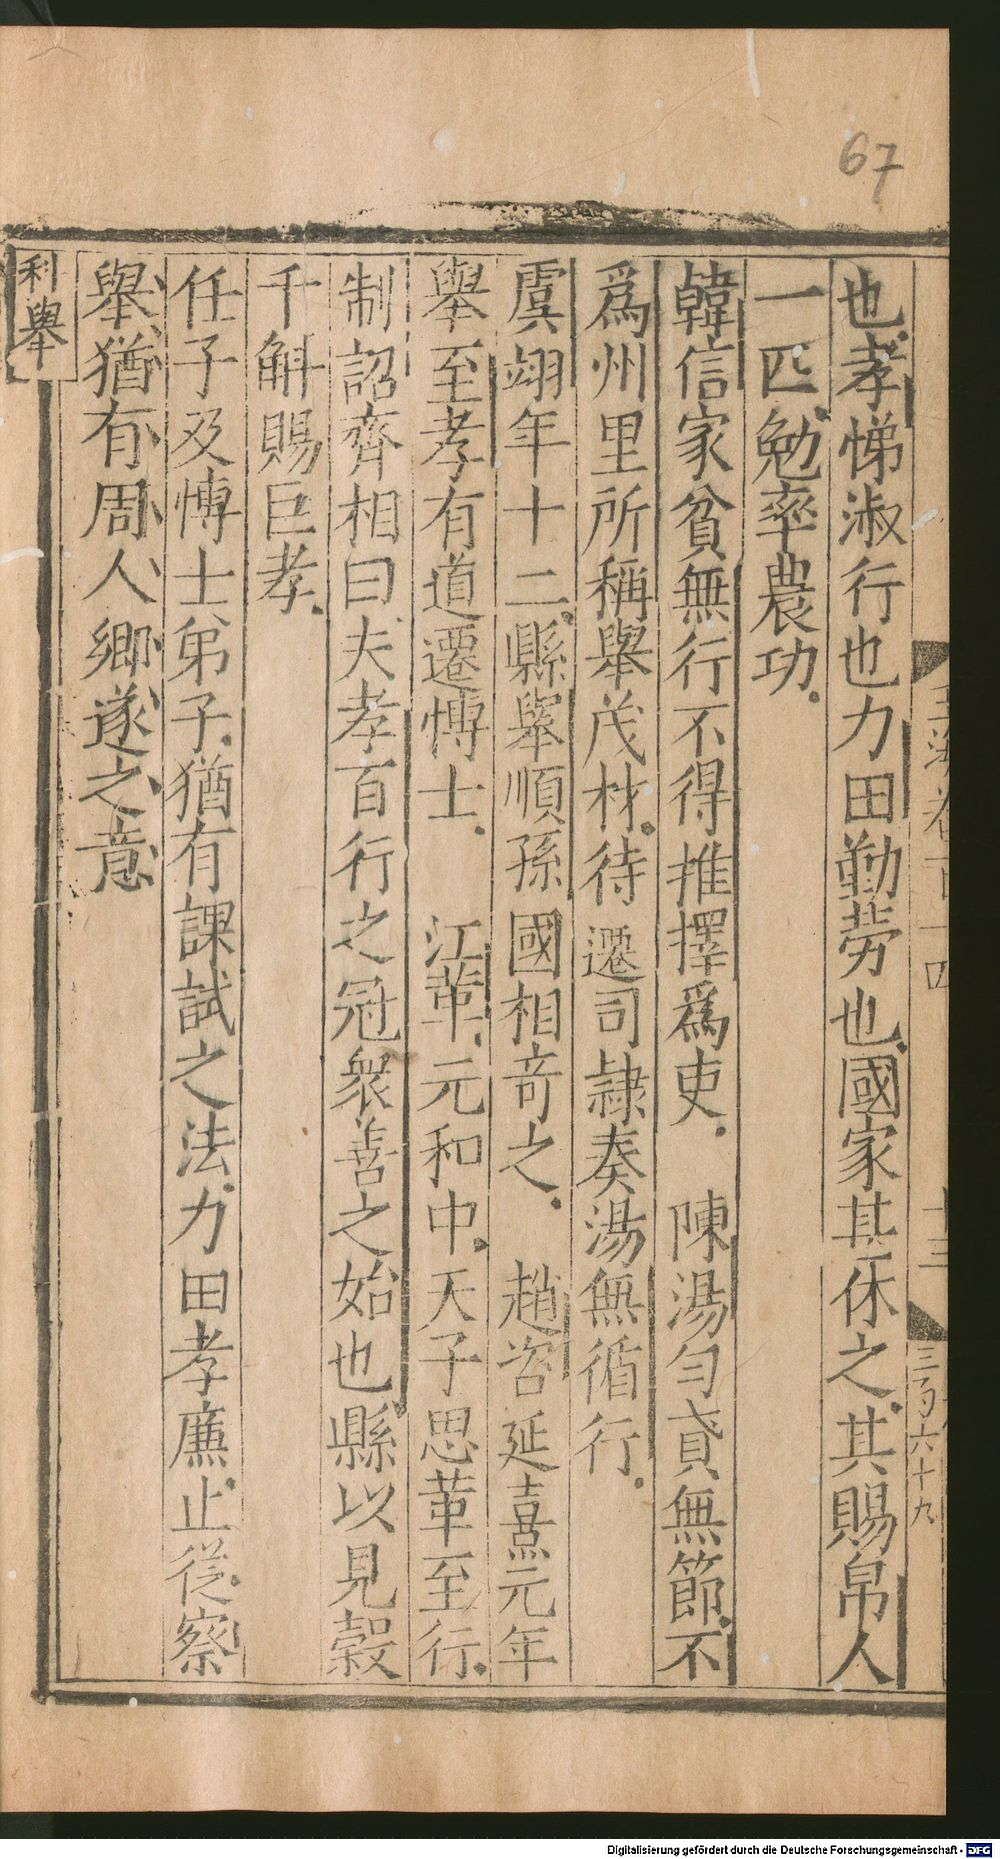 67
也孝悌淑行也力田勤勞也國家甚休之其賜帛人
一匹勉率農功
韓信家貧無行不得推擇爲吏　陳湯匄貣無節不
爲州里所稱舉茂材待遷司隷奏湯無循行
虞翊年十二縣舉順孫國相竒之　趙咨延熹元年
舉至孝有道遷博士　江革元和中天子思革至行
制詔齊相曰夫孝百行之冠衆善之始也縣以見榖
千斛賜巨孝
任子及博士弟子猶有課試之法力田孝廉止從察
舉猶有周人鄉遂之意
科舉
玉海卷百十四
十三
三百六十九
Digitalisierung gefördert durch die Deutsche Forschungsgemeinschaft - DFG